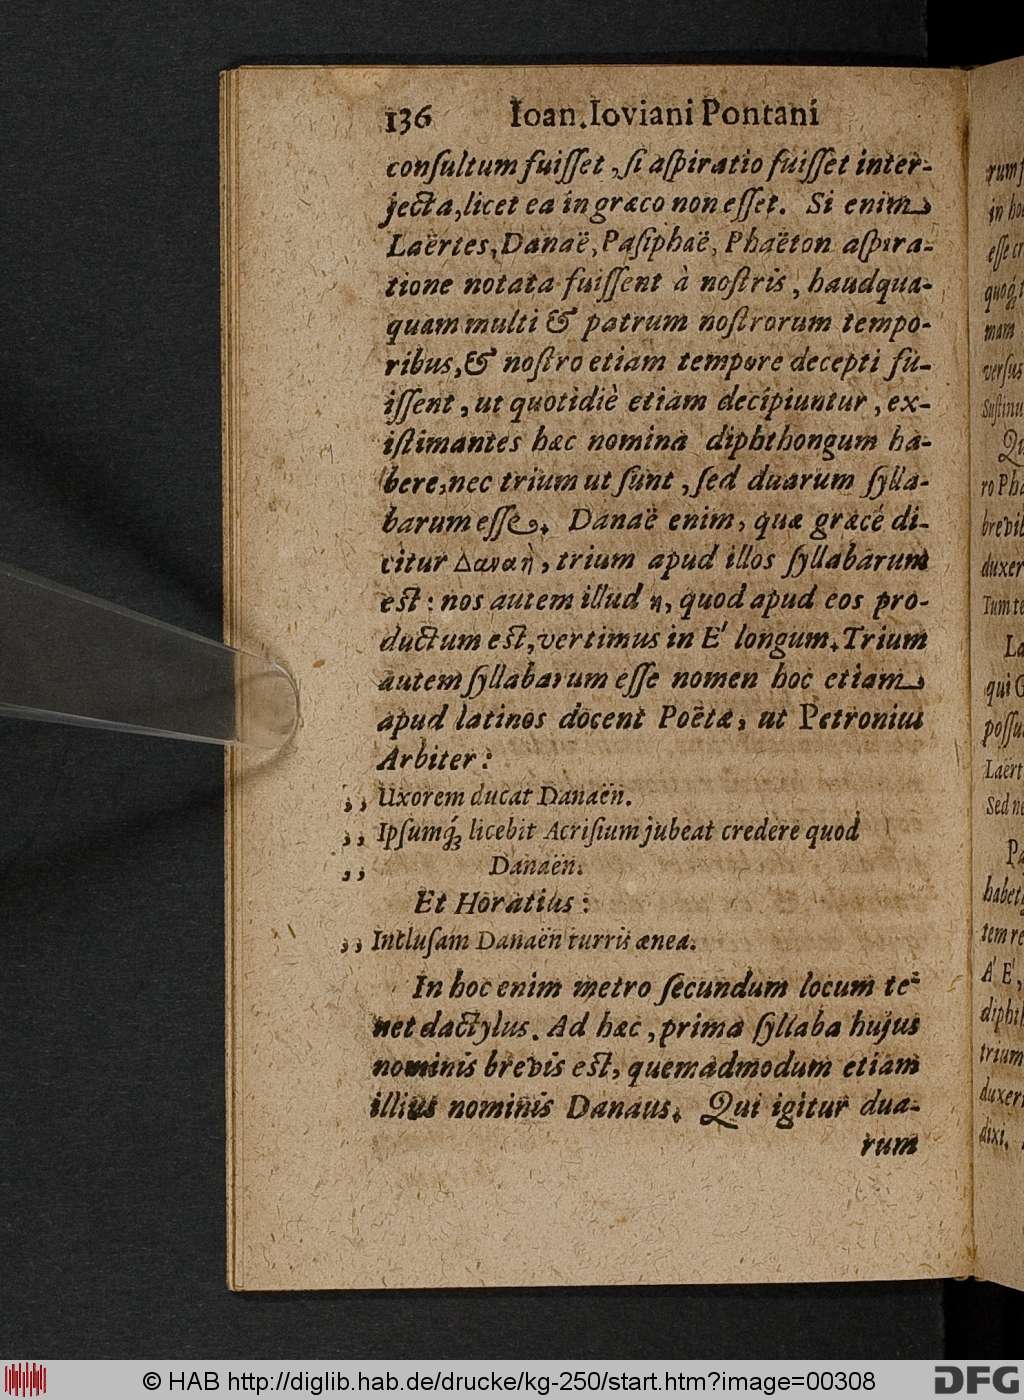 136 Ioan. Ioviani Pontani
conſultum fuiſſet, ſi aſpiratio fuiſſet inter-
jecta, licet ea in græco non eſſet. Si enim
Laërtes, Danaë, Paſiphaë, Phaëton aſpira-
tione notata fuiſſent à noſtris, haudqua-
quam multi & patrum noſtrorum tempo-
ribus, & noſtro etiam tempore decepti fu-
iſſent, ut quotidiè etiam decipiuntur, ex-
iſtimantes hæc nomina diphthongum ha-
bere, nec trium ut ſunt, ſed duarum ſylla-
barum eſſe. Danaë enim, quæ græcé di-
citur Δαναὴ, trium apud illos ſyllabarum
eſt: nos autem illud η, quod apud eos pro-
ductum eſt, vertimus in E' longum. Trium
autem ſyllabarum eſſe nomen hoc etiam
apud latinos docent Poëtæ, ut Petronius
Arbiter:
,, Uxorem ducat Danaën.
,, Ipſumq́; licebit Acriſium jubeat credere quod
,, Danaën.
Et Horatius:
,, Incluſam Danaën turris ænea.
In hoc enim metro ſecundum locum te-
net dactylus. Ad hæc, prima ſyllaba hujus
nominis brevis eſt, quemadmodum etiam
illius nominis Danaus. Qui igitur dua-
rum
© HAB http://diglib.hab.de/drucke/kg-250/start.htm?image=00308
DFG